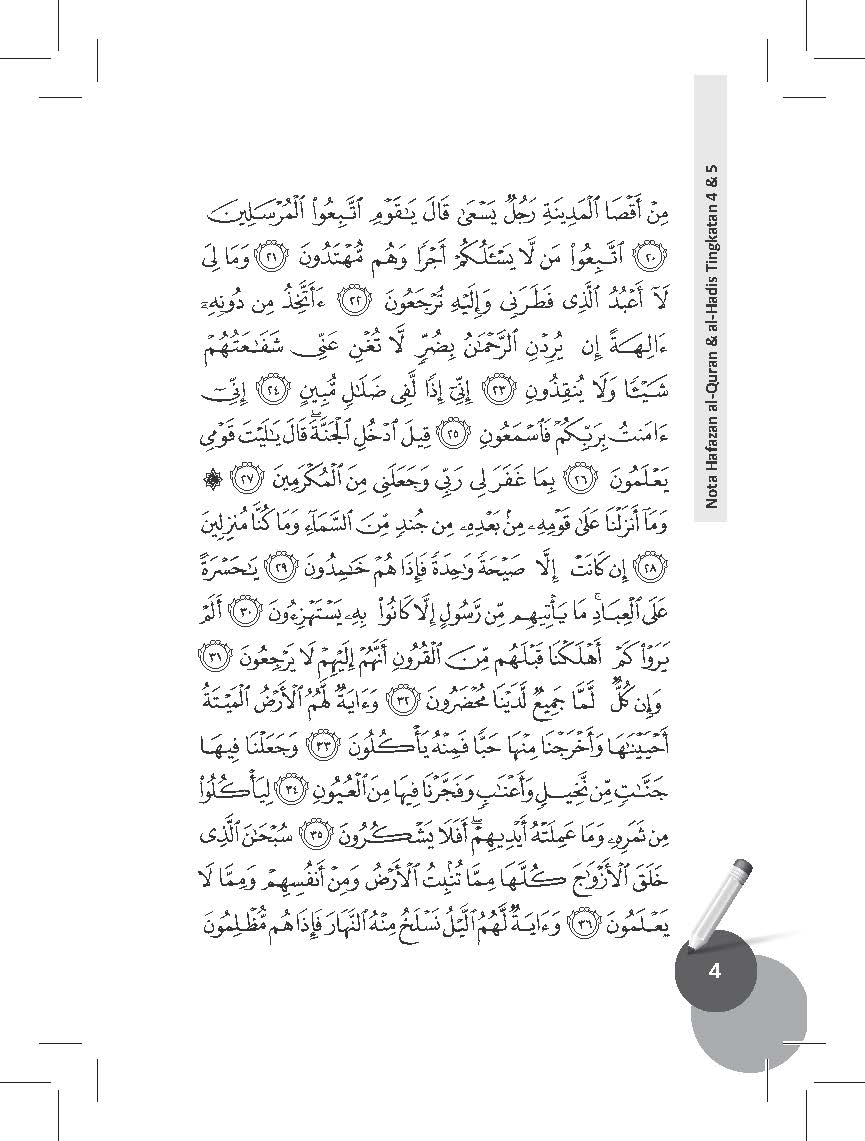 مِنْ أَقْصَا ٱلْمَدِينَةِ رَجُلٌ يَسْعَىٰ قَالَ يَـٰقَوْمِ ٱتَّبِعُوا۟ ٱلْمُرْسَلِينَ
﴿٢٠﴾ ٱتَّبِعُوا۟ مَن لَّا يَسْـَٔلُكُمْ أَجْرًا وَهُم مُّهْتَدُونَ ﴿٢١﴾ وَمَا لِىَ
لَآ أَعْبُدُ ٱلَّذِى فَطَرَنِى وَإِلَيْهِ تُرْجَعُونَ ﴿٢٢﴾ ءَأَتَّخِذُ مِن دُونِهِۦٓ
ءَالِهَةً إِن يُرِدْنِ ٱلرَّحْمَـٰنُ بِضُرٍّ لَّا تُغْنِ عَنِّى شَفَـٰعَتُهُمْ
شَيْـًٔا وَلَا يُنقِذُونِ ﴿٢٣﴾ إِنِّىٓ إِذًا لَّفِى ضَلَـٰلٍ مُّبِينٍ ﴿٢٤﴾ إِنِّىٓ
ءَامَنتُ بِرَبِّكُمْ فَٱسْمَعُونِ ﴿٢٥﴾ قِيلَ ٱدْخُلِ ٱلْجَنَّةَ ۖ قَالَ يَـٰلَيْتَ قَوْمِى
يَعْلَمُونَ ﴿٢٦﴾ بِمَا غَفَرَ لِى رَبِّى وَجَعَلَنِى مِنَ ٱلْمُكْرَمِينَ ﴿٢٧﴾ ۞
وَمَآ أَنزَلْنَا عَلَىٰ قَوْمِهِۦ مِنۢ بَعْدِهِۦ مِن جُندٍ مِّنَ ٱلسَّمَآءِ وَمَا كُنَّا مُنزِلِينَ
﴿٢٨﴾ إِن كَانَتْ إِلَّا صَيْحَةً وَٰحِدَةً فَإِذَا هُمْ خَـٰمِدُونَ ﴿٢٩﴾ يَـٰحَسْرَةً
عَلَى ٱلْعِبَادِ ۚ مَا يَأْتِيهِم مِّن رَّسُولٍ إِلَّا كَانُوا۟ بِهِۦ يَسْتَهْزِءُونَ ﴿٣٠﴾ أَلَمْ
يَرَوْا۟ كَمْ أَهْلَكْنَا قَبْلَهُم مِّنَ ٱلْقُرُونِ أَنَّهُمْ إِلَيْهِمْ لَا يَرْجِعُونَ ﴿٣١﴾
وَإِن كُلٌّ لَّمَّا جَمِيعٌ لَّدَيْنَا مُحْضَرُونَ ﴿٣٢﴾ وَءَايَةٌ لَّهُمُ ٱلْأَرْضُ ٱلْمَيْتَةُ
أَحْيَيْنَـٰهَا وَأَخْرَجْنَا مِنْهَا حَبًّا فَمِنْهُ يَأْكُلُونَ ﴿٣٣﴾ وَجَعَلْنَا فِيهَا
جَنَّـٰتٍ مِّن نَّخِيلٍ وَأَعْنَـٰبٍ وَفَجَّرْنَا فِيهَا مِنَ ٱلْعُيُونِ ﴿٣٤﴾ لِيَأْكُلُوا۟
مِن ثَمَرِهِۦ وَمَا عَمِلَتْهُ أَيْدِيهِمْ ۖ أَفَلَا يَشْكُرُونَ ﴿٣٥﴾ سُبْحَـٰنَ ٱلَّذِى
خَلَقَ ٱلْأَزْوَٰجَ كُلَّهَا مِمَّا تُنۢبِتُ ٱلْأَرْضُ وَمِنْ أَنفُسِهِمْ وَمِمَّا لَا
يَعْلَمُونَ ﴿٣٦﴾ وَءَايَةٌ لَّهُمُ ٱلَّيْلُ نَسْلَخُ مِنْهُ ٱلنَّهَارَ فَإِذَا هُم مُّظْلِمُونَ
Nota Hafazan al-Quran & al-Hadis Tingkatan 4 & 5
4